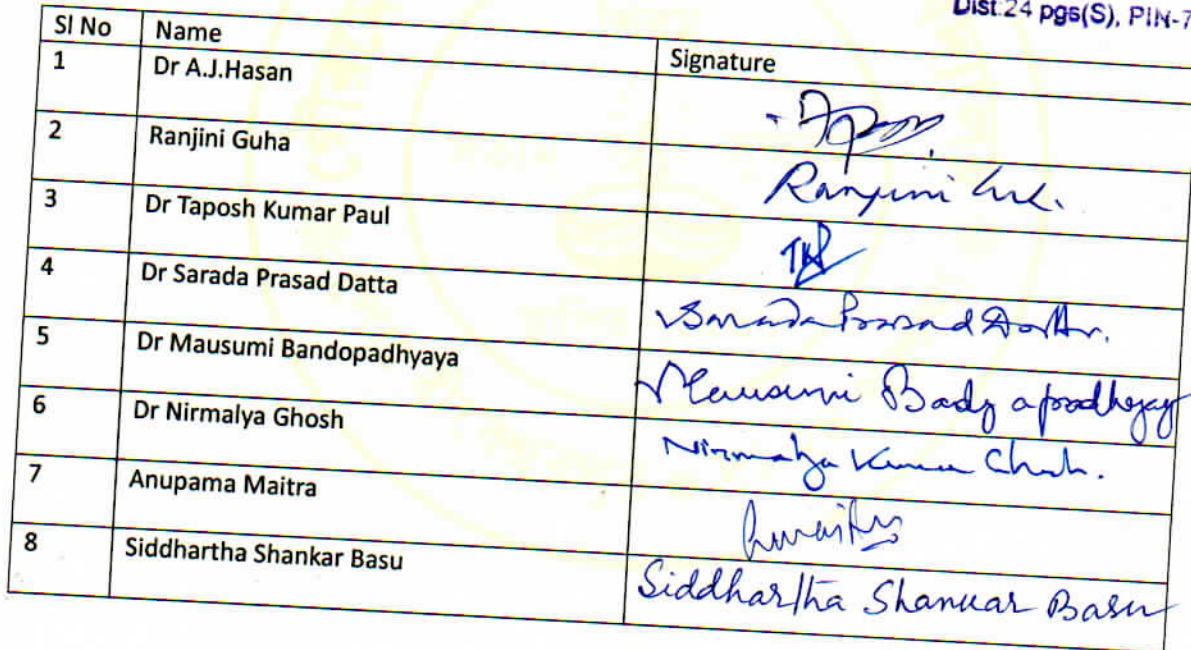 Dist.24 pgs(S), PIN-7
Sl No Name Signature
1 Dr A.J.Hasan
2 Ranjini Guha Ranjini
3 Dr Taposh Kumar Paul TKP
4 Dr Sarada Prasad Datta Sarada Prasad Datta.
5 Dr Mausumi Bandopadhyaya Mausumi Bandyopadhyay
6 Dr Nirmalya Ghosh Nirmalya Kumar Ghosh.
7 Anupama Maitra
8 Siddhartha Shankar Basu Siddhartha Shankar Basu